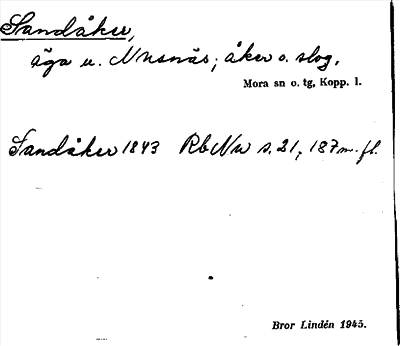 Sandåker,
äga u. Nusnäs; åker o. slog.
Mora sn o. tg, Kopp. l.
Sandåker 1843 Rb Nu s. 21, 187 m. fl.
Bror Lindén 1945.